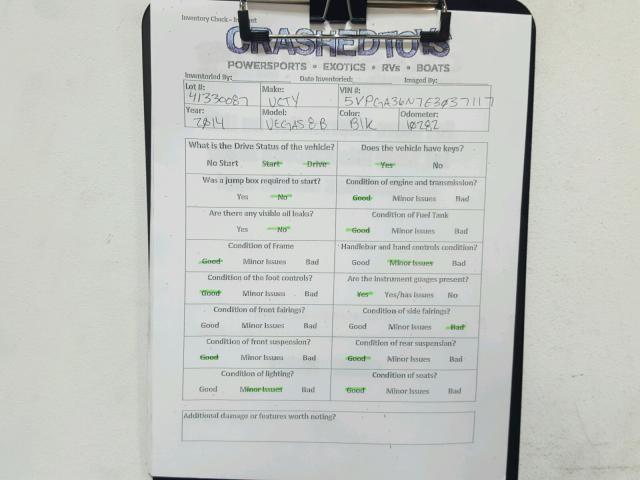 Inventory Check - In
CRASHEDTOYS
POWERSPORTS • EXOTICS • RVs • BOATS
Inventoried By: Date Inventoried: Imaged By:
Lot #: Make: VIN #:
41330087 VCTY 5VPGA36N7E3037117
Year: Model: Color: Odometer:
2014 VEGAS 8B Blk 10282
What is the Drive Status of the vehicle? Does the vehicle have keys?
No Start Start Drive Yes No
Was a jump box required to start? Condition of engine and transmission?
Yes No Good Minor Issues Bad
Are there any visible oil leaks? Condition of Fuel Tank
Yes No Good Minor Issues Bad
Condition of Frame Handlebar and hand controls condition?
Good Minor Issues Bad Good Minor Issues Bad
Condition of the foot controls? Are the instrument guages present?
Good Minor Issues Bad Yes Yes/has issues No
Condition of front fairings? Condition of side fairings?
Good Minor Issues Bad Good Minor Issues Bad
Condition of front suspension? Condition of rear suspension?
Good Minor Issues Bad Good Minor Issues Bad
Condition of lighting? Condition of seats?
Good Minor Issues Bad Good Minor Issues Bad
Additional damage or features worth noting?